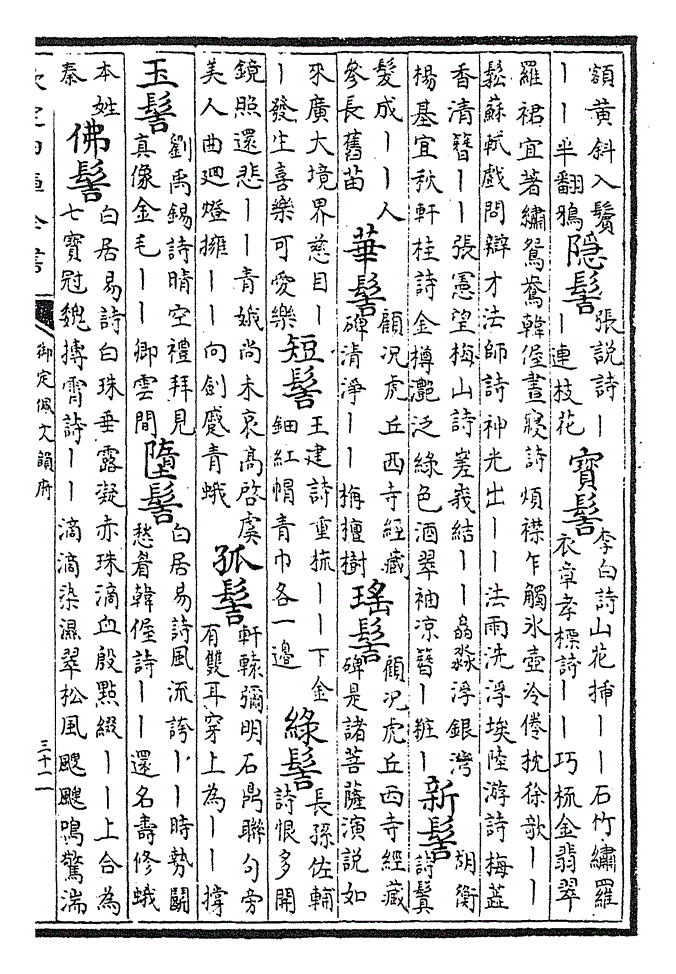 額黃斜入鬢
——半翻鴉
隠髻
張説詩—
—連枝花
寶髻
李白詩山花揷——石竹繡羅
衣章孝標詩——巧梳金翡翠
羅裙宜著繡鴛鴦韓偓晝寢詩煩襟乍觸氷壺冷倦枕徐欹——
鬆蘇軾戲問辯才法師詩神光出——法雨洗浮埃陸游詩梅蕋
香清簪——張憲望梅山詩嵳峩結——淼淼浮銀灣
楊基宜秋軒桂詩金樽灔泛綠色酒翠袖凉簪—粧—
新髻
胡衡
詩鬒
髮成——人
參長舊苗
華髻
顧况虎丘西寺經藏
碑清淨——栴檀樹
瑤髻
顧况虎丘西寺經藏
碑是諸菩薩演説如
來廣大境界慈目—
—發生喜樂可愛樂
短髻
王建詩重梳——下金
鈿紅帽青巾各一邊
綠髻
長孫佐輔
詩恨多開
鏡照還悲——青娥尚未衰高啓虞
美人曲廻燈擁——向劍蹙青蛾
孤髻
軒轅彌明石鼎聯句旁
有雙耳穿上為——撑
玉髻
劉禹錫詩晴空禮拜見
真像金毛——卿雲間
墮髻
白居易詩風流誇——時勢鬬
愁眉韓偓詩——還名壽修蛾
本姓
秦
佛髻
白居易詩白珠垂露凝赤珠滴血殷點綴——上合為
七寶冠魏摶霄詩——滴滴染濕翠松風颼颼鳴驚湍
欽定四庫全書
御定佩文韻府
三十二